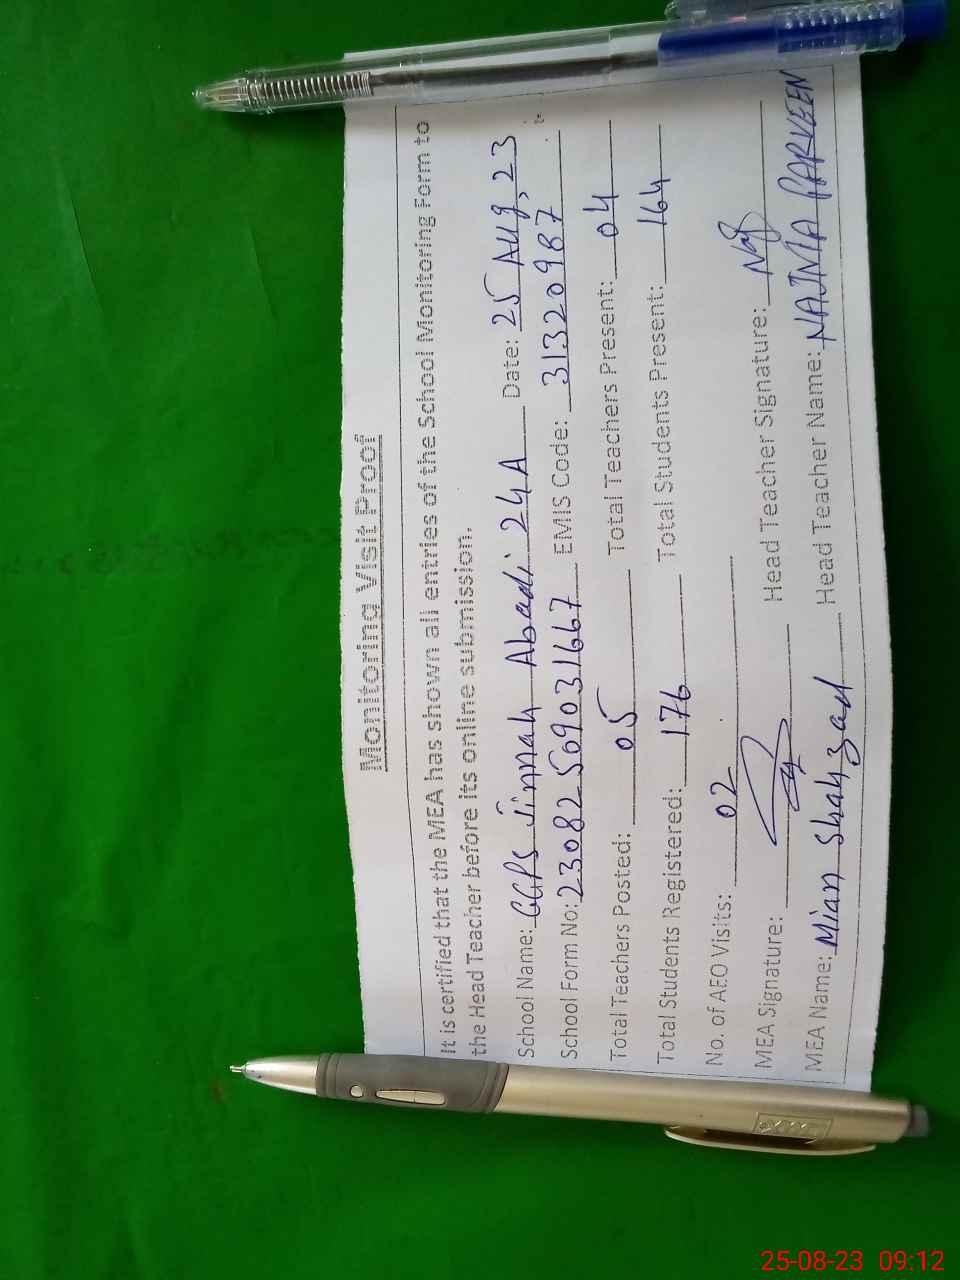 Monitoring Visit Proof
It is certified that the MEA has shown all entries of the School Monitoring Form to
the Head Teacher before its online submission.
School Name: GGPS Jinnah Abadi 24A Date: 25 Aug, 23
School Form No: 23082569031667 EMIS Code: 31320987
Total Teachers Posted: 05 Total Teachers Present: 04
Total Students Registered: 176 Total Students Present: 164
No. of AEO Visits: 02
MEA Signature: Head Teacher Signature:
MEA Name: Mian Shahzad Head Teacher Name: NAJMA PARVEEN
25-08-23 09:12